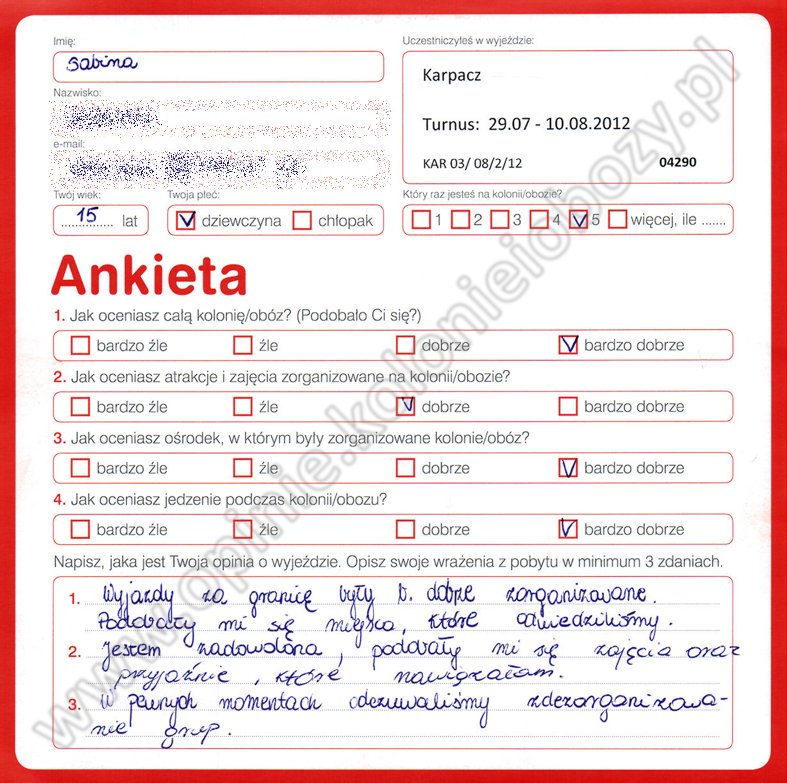 Imię:
Sabina
Nazwisko:
e-mail:
Twój wiek:
15 lat
Twoja płeć:
dziewczyna chłopak
Uczestniczyłeś w wyjeździe:
Karpacz
Turnus: 29.07 - 10.08.2012
KAR 03/ 08/2/12 04290
Który raz jesteś na kolonii/obozie?
1 2 3 4 5 więcej, ile .......
Ankieta
1. Jak oceniasz całą kolonię/obóz? (Podobało Ci się?)
bardzo źle źle dobrze bardzo dobrze
2. Jak oceniasz atrakcje i zajęcia zorganizowane na kolonii/obozie?
bardzo źle źle dobrze bardzo dobrze
3. Jak oceniasz ośrodek, w którym były zorganizowane kolonie/obóz?
bardzo źle źle dobrze bardzo dobrze
4. Jak oceniasz jedzenie podczas kolonii/obozu?
bardzo źle źle dobrze bardzo dobrze
Napisz, jaka jest Twoja opinia o wyjeździe. Opisz swoje wrażenia z pobytu w minimum 3 zdaniach.
1. Wyjazdy za granicę były b. dobrze zorganizowane.
Podobały mi się miejsca, które odwiedziliśmy.
2. Jestem zadowolona, podobały mi się zajęcia oraz
przyjaźnie, które nawiązałam.
3. W pewnych momentach odczuwaliśmy zdezorganizowa-
nie grup.
www.opinie.kolonieiobozy.pl